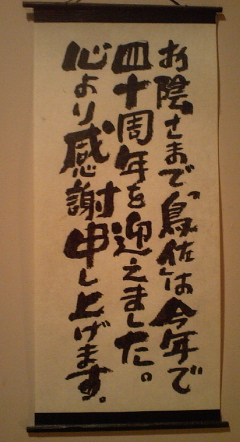 お陰さまで「鳥佐」は今年で
四十周年を迎えました。
心より感謝申し上げます。